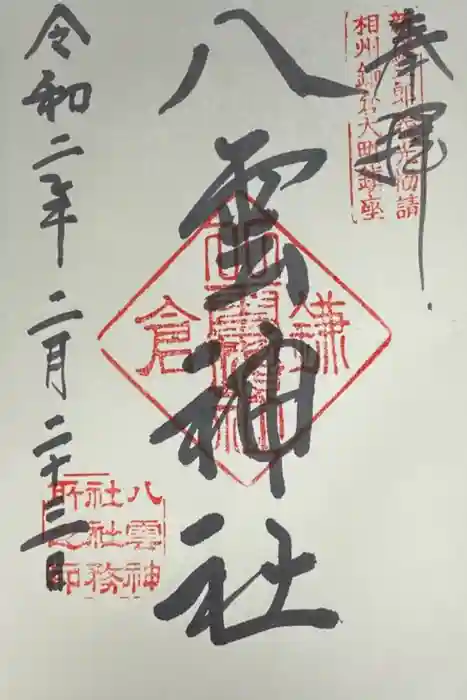 奉拝
相州鎌倉大町鎮座
八雲神社
鎌倉
八雲神
社社務
所之印
令和二年二月二十三日